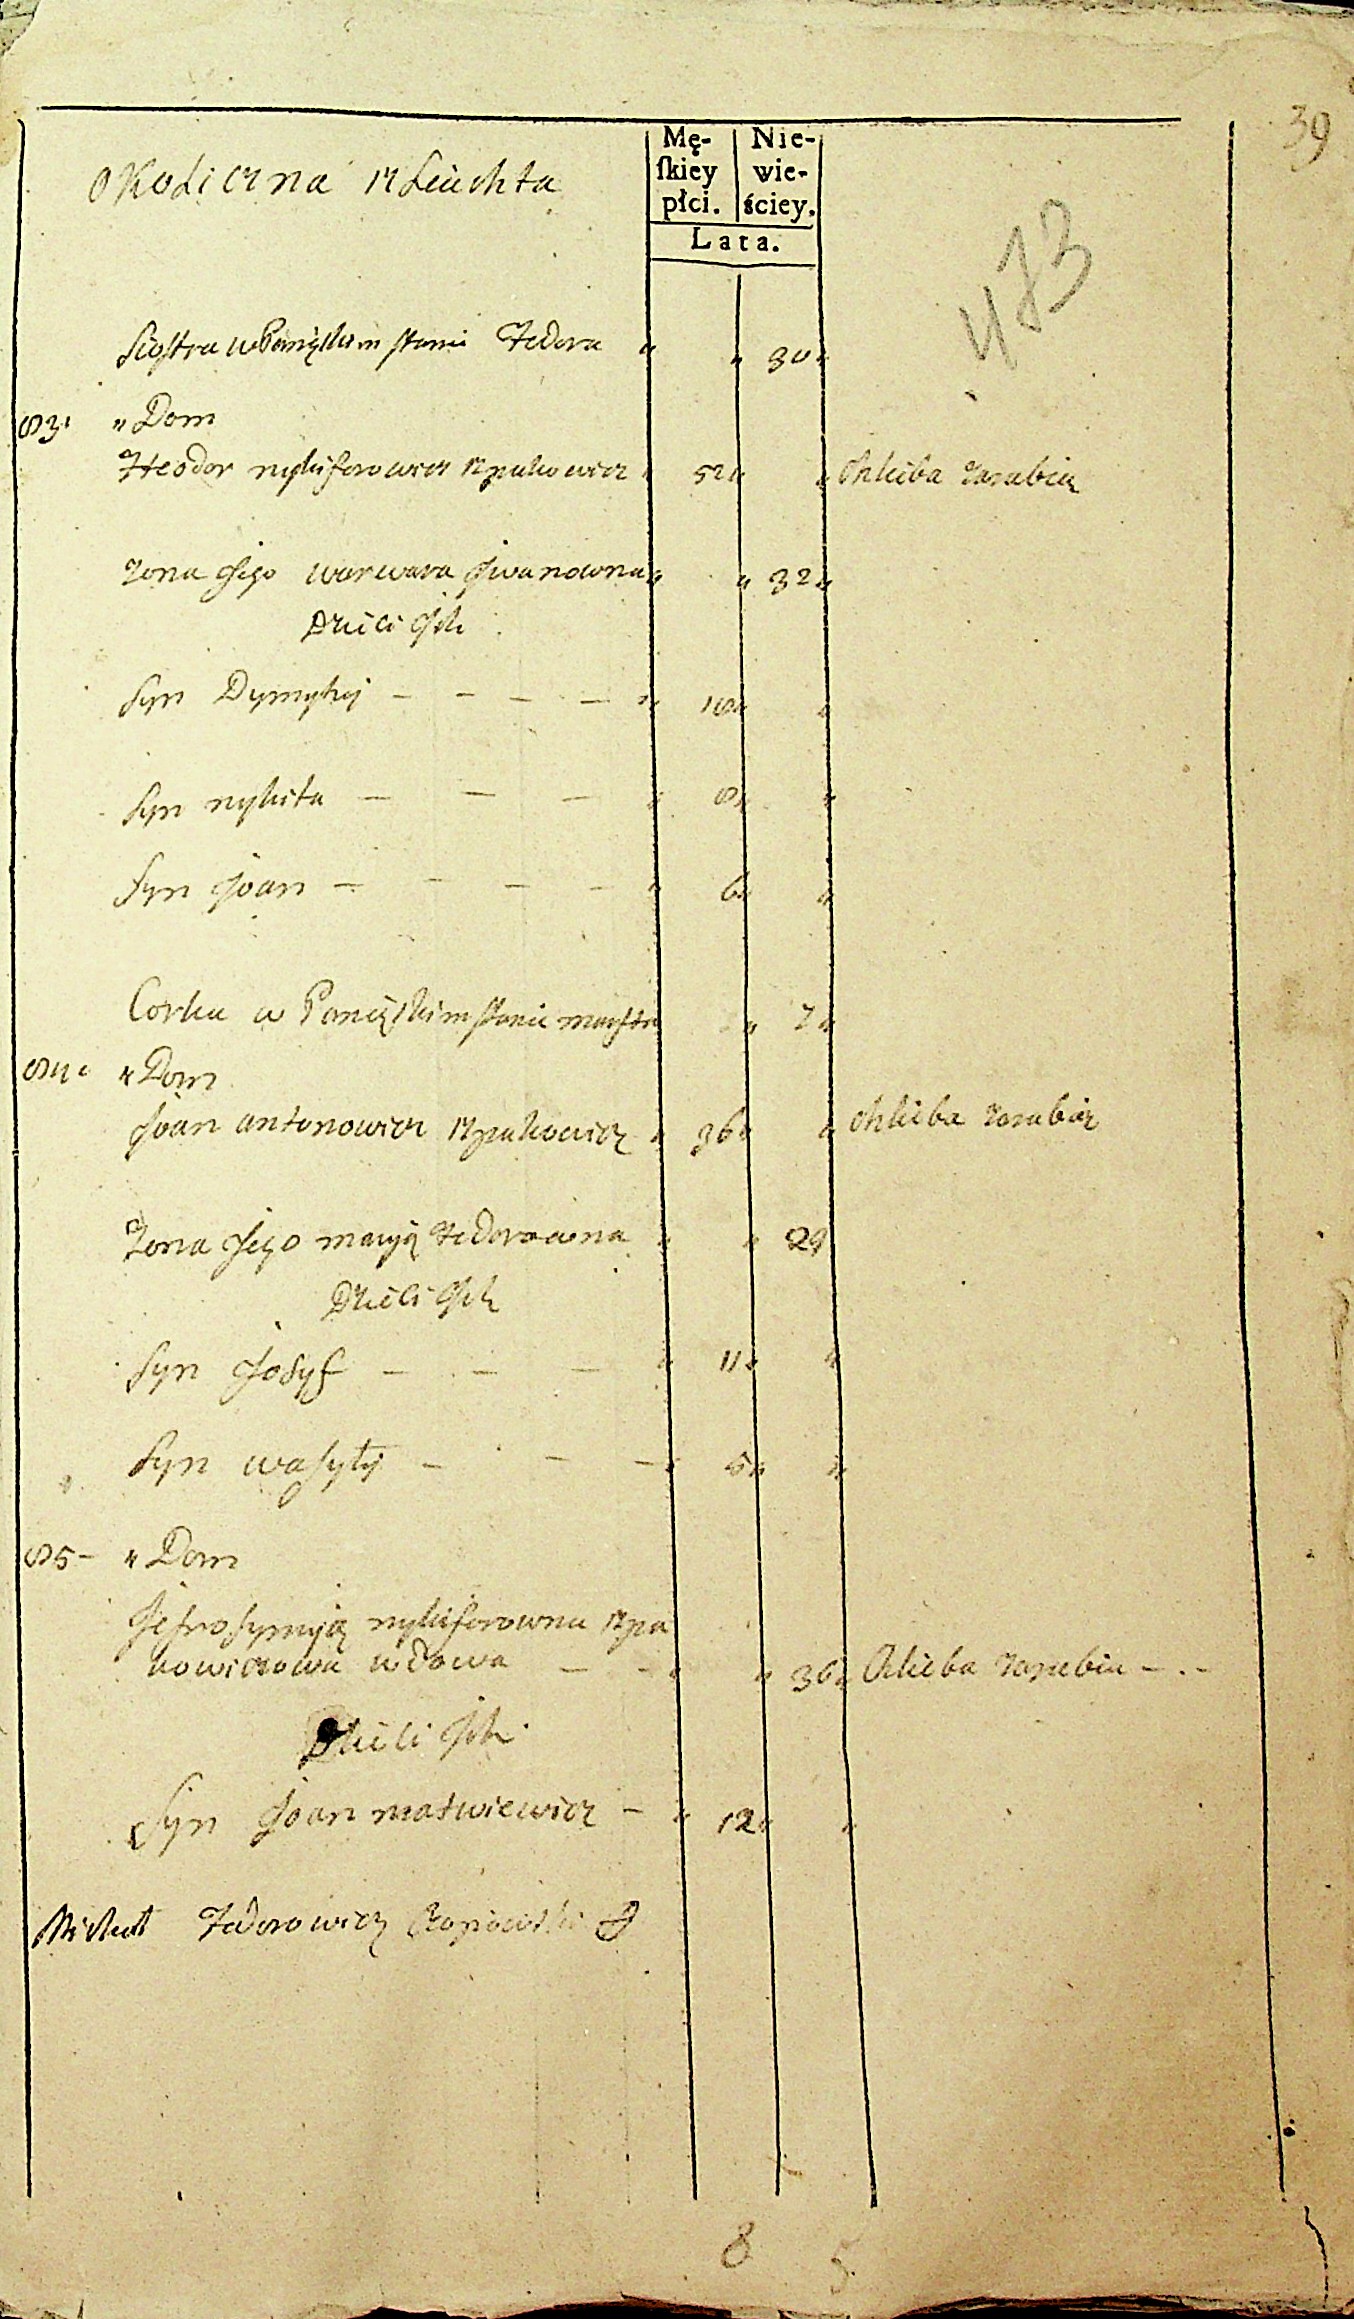 39
Okoliczna Szlachta
Mę-
skiey
płci.
Nie-
wie-
ściey.
Lata.
473
Siostra w Panięskim stanie Fedora " " 30 "
83 " Dom
Fteodor nykiforowicz Szpakowicz " 52 " " Chleba zarabia
Zona Jego warwara Jwanowna " " 32 "
Dzieci Jch
Syn Dymytryj — — — — " 10 " "
Syn nykita — — — " 8 " "
Syn Joan — — — — " 6 " "
Corka w Panięskim stanie 7 "
84 " Dom
Joan antonowicz Szpakowicz " 36 " " Chleba zarabia
Zona Jego maryja Fedorowna " " 29
Dzieci Jch
Syn Josyf — — — " 11 " "
Syn wasyły — — — " 5 " "
85 — " Dom
Jefrosynyja nykiforowna Szpa
kowiczowa wdowa — — " " 36 " Chleba zarabia — . —
Dzieci Jch
Syn Joan matwiewicz — " 12 " "
Michał Fedorowicz
8 5